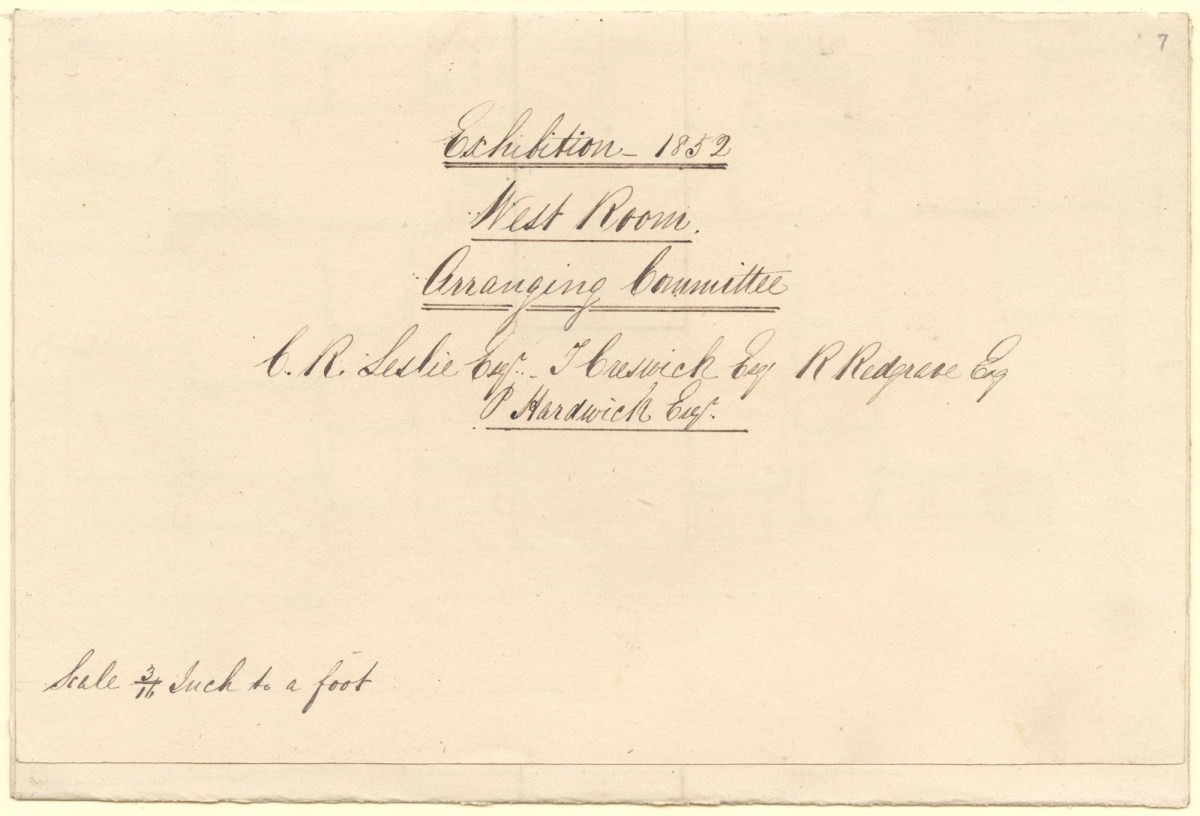 7
Exhibition - 1852
West Room.
Arranging Committee
C. R. Leslie Esqr. - T Creswick Esq R Redgrave Esq
P Hardwick Esqr.
Scale 3/16 Inch to a foot